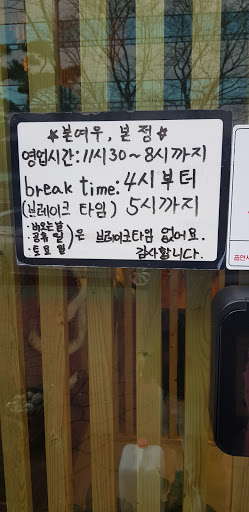 ★본여우, 본 정★
영업시간:11시30~8시까지
break time:4시부터
(브레이크 타임) 5시까지
·비오는날
·공휴일 )은 브레이크타임 없어요.
·토요일 감사합니다.